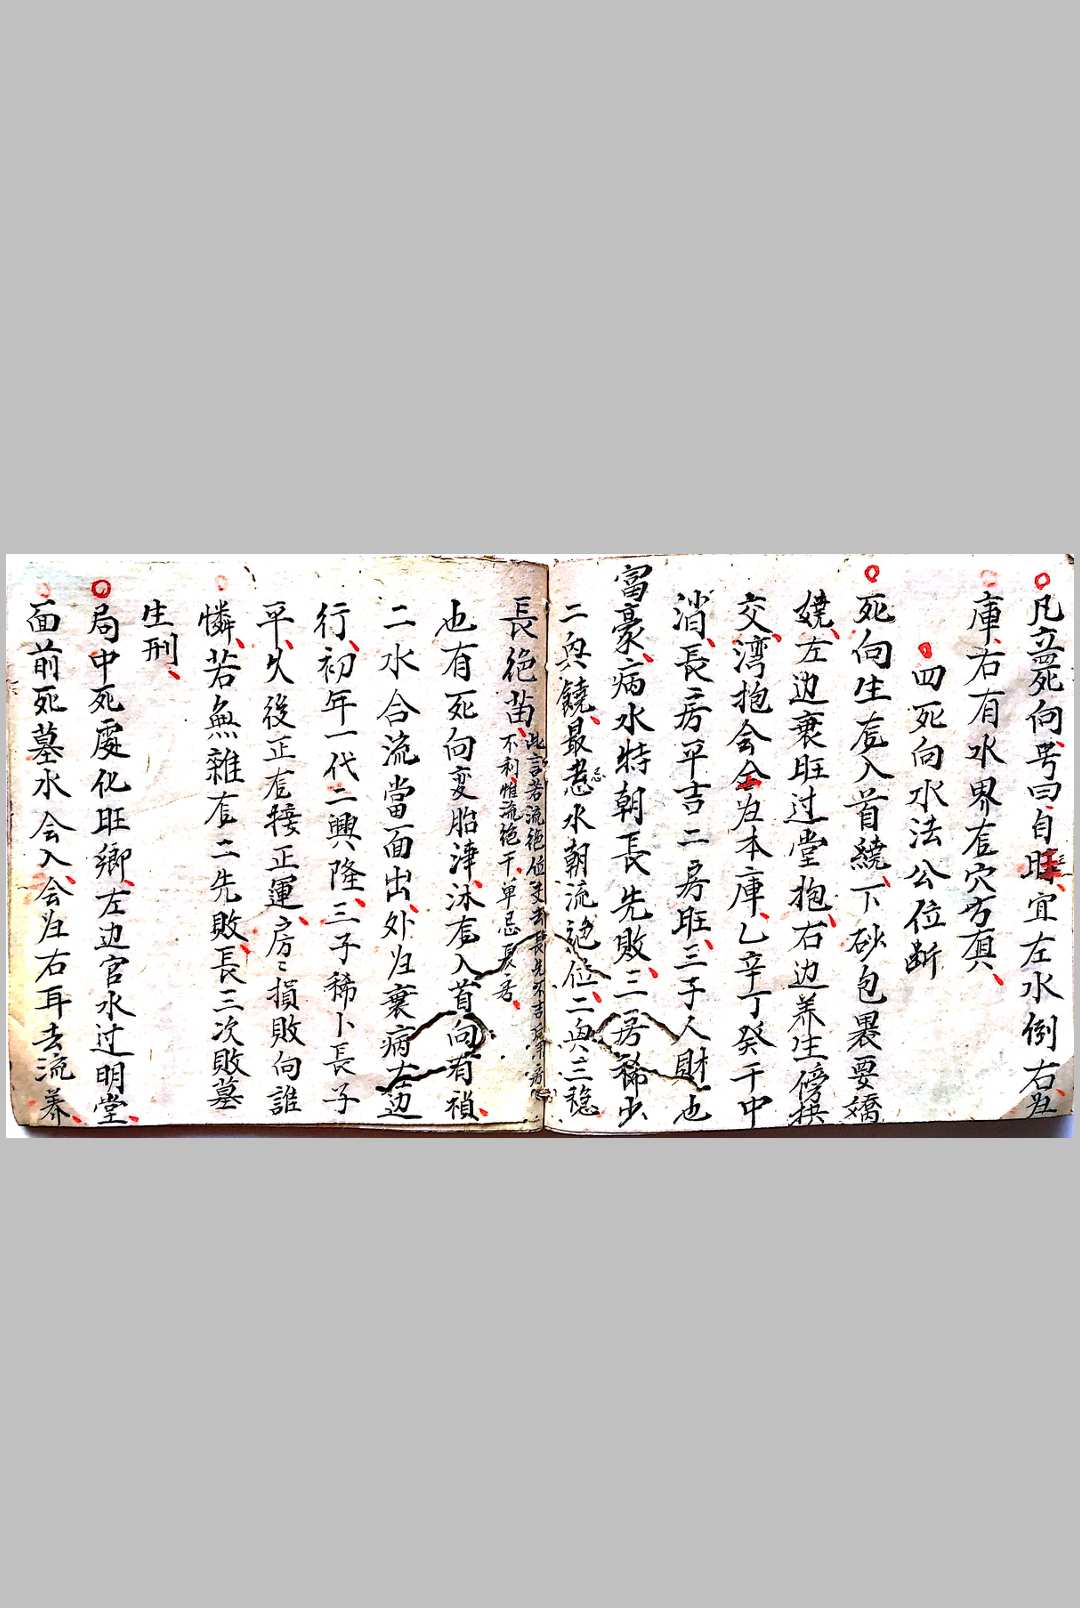 凡立死向号曰自旺宜左水倒右归
庫右有水界左穴方真
四死向水法公位断
死向生左入首繞下砂包裹要嬌
嬈左边衰旺过堂抱右边养生傍拱
交湾抱会全归本庫乙辛丁癸干中
消長房平吉二房旺三子人財也
富豪病水特朝長先敗三房稀少
二典饒最忌水朝流絕位二典三稳
長绝苗此言若流绝位支去長先不吉
不利惟流绝干单忌長房
也有死向变胎津沐左入首向有禎
二水合流當面出外归衰病左边
行初年一代二興隆三子稀卜長子
平久後正左接正運房〻損敗向誰
憐若無雜左二先敗長三次敗墓
生刑
局中死處化旺鄉左边官水过明堂
面前死墓水会入会归右耳去流养